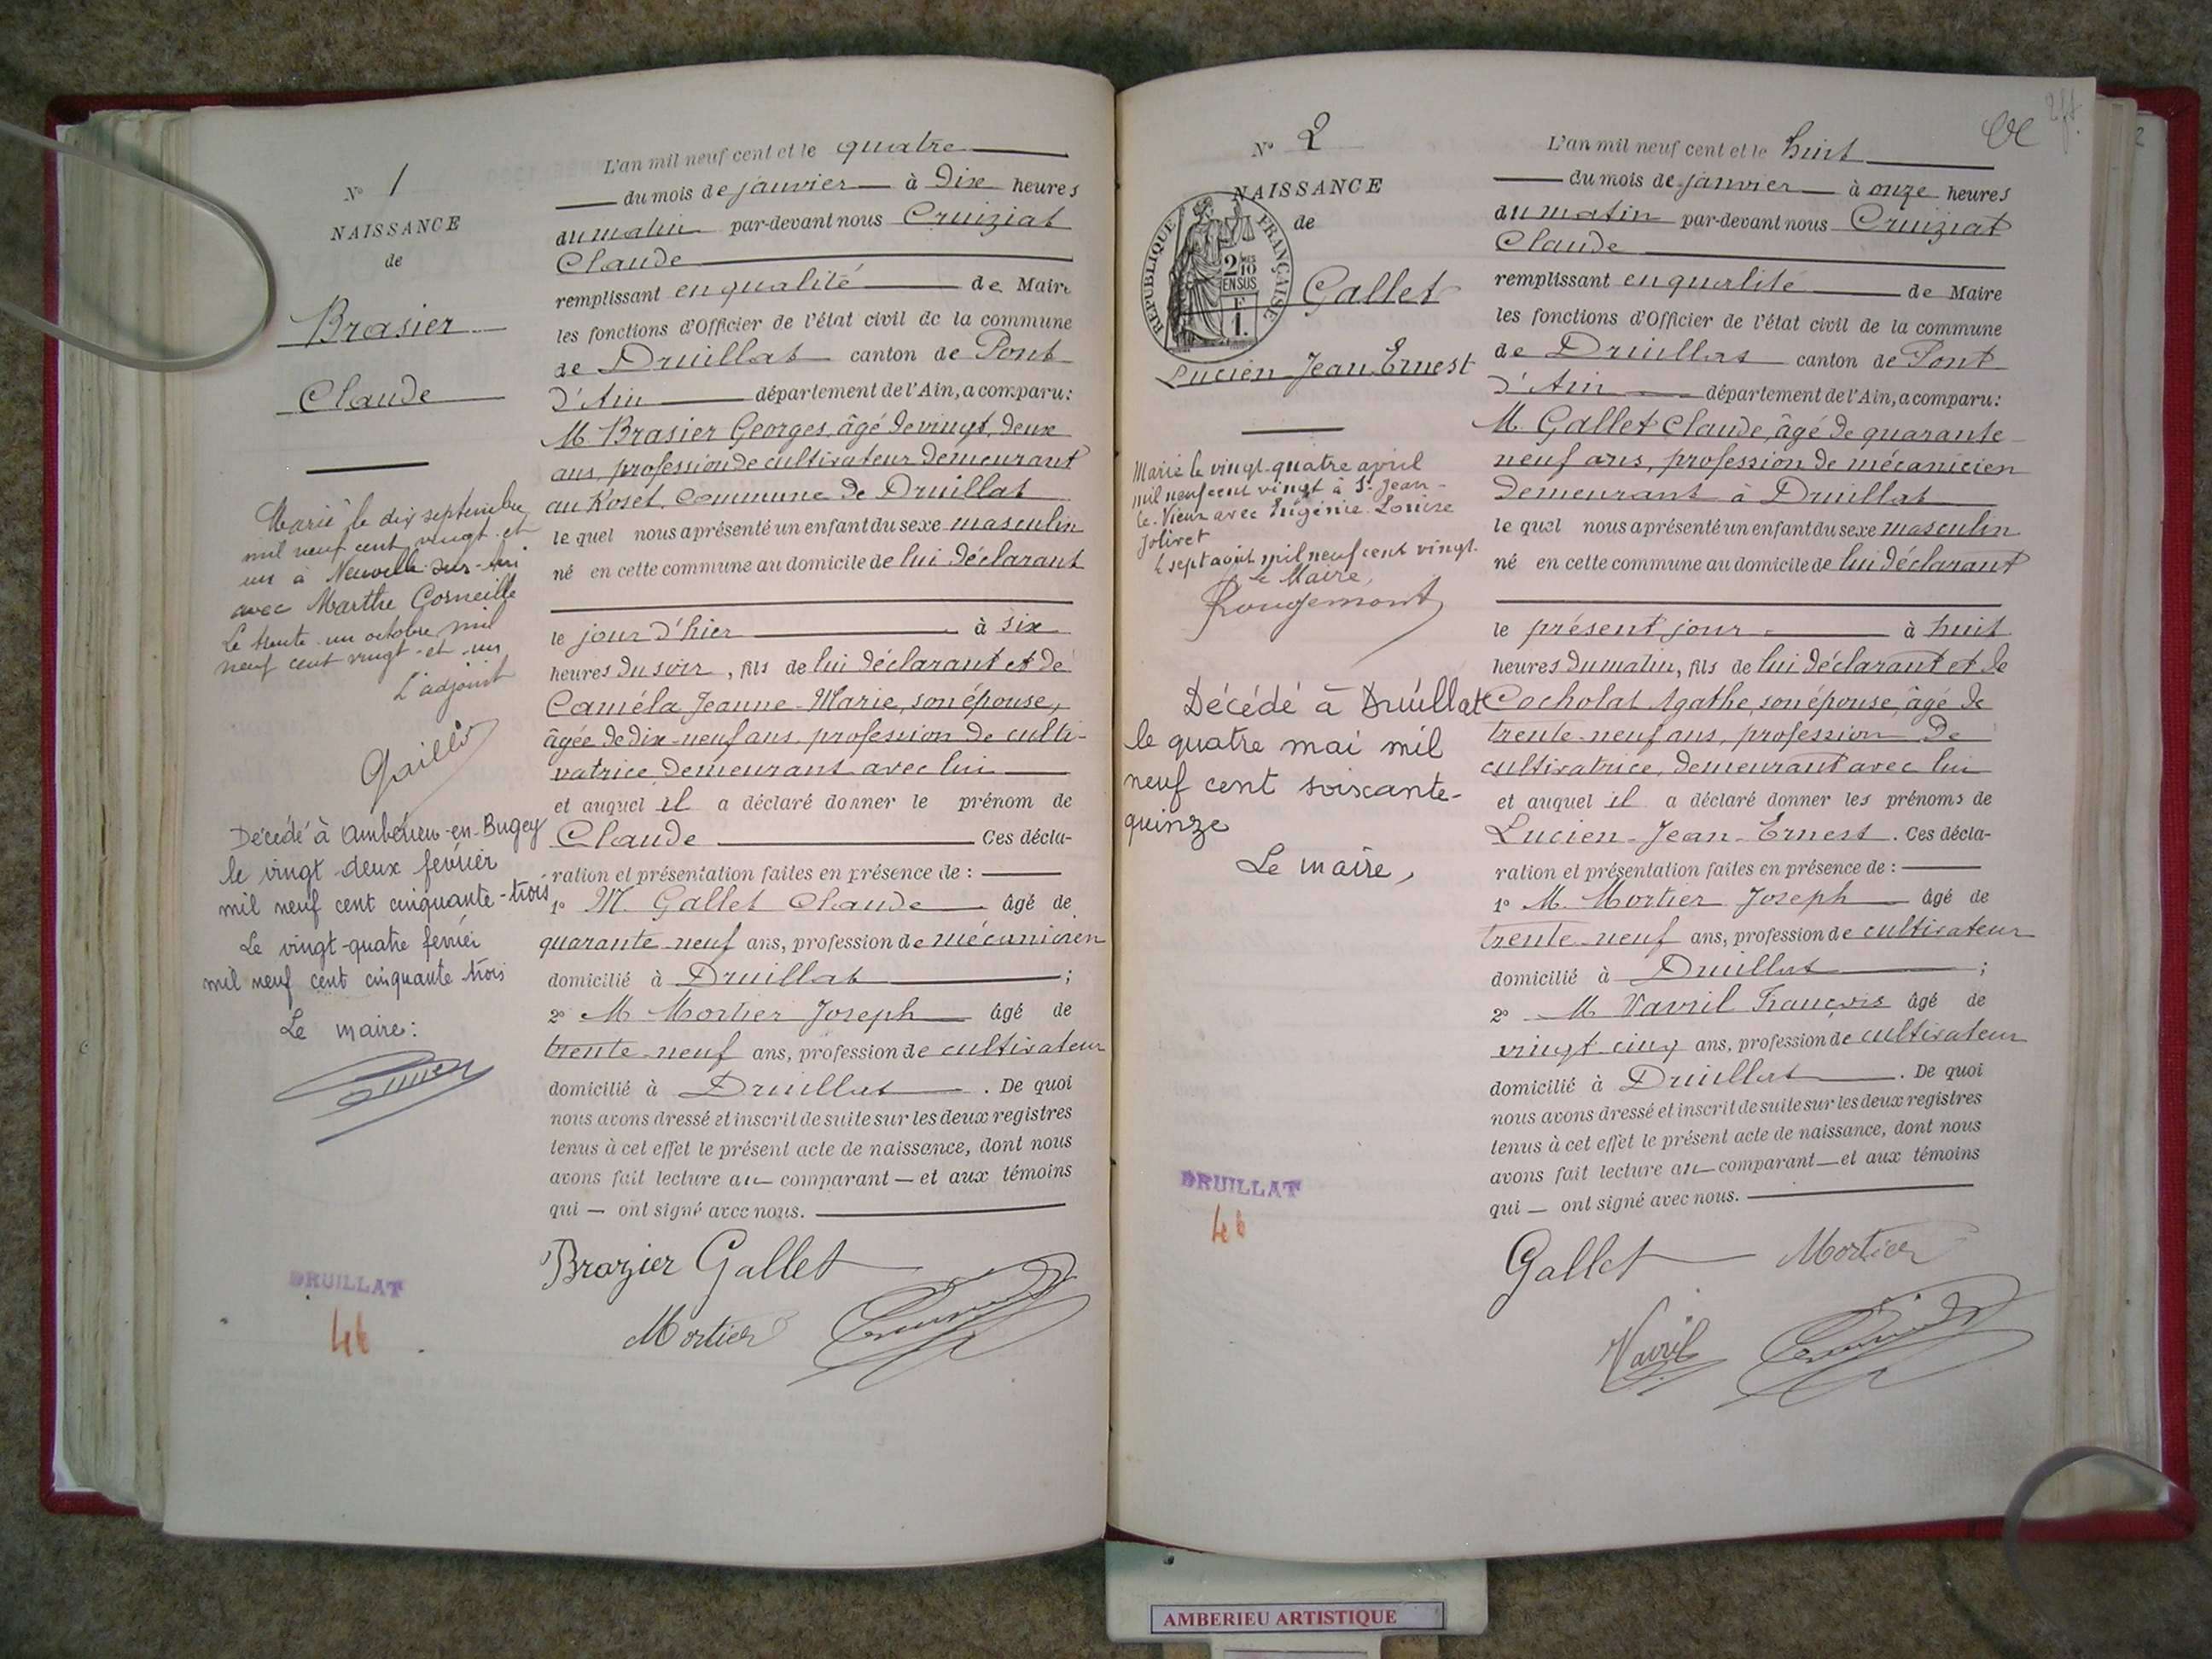 N° 1
NAISSANCE
de
Brasier
Claude
Marié le dix septembre
mil neuf cent vingt et
un à Neuville-sur-Ain
avec Marthe Corneille
Le trente-un octobre mil
neuf cent vingt-et-un
L'adjoint
Décédé à Ambérieu-en-Bugey
le vingt deux février
mil neuf cent cinquante-trois
Le vingt-quatre février
mil neuf cent cinquante trois
Le maire:
DRUILLAT
46
L'an mil neuf cent et le quatre
du mois de janvier à dix heures
du matin par-devant nous Cruiziat
Claude
remplissant en qualité de Maire
les fonctions d'Officier de l'état civil de la commune
de Druillat canton de Pont
d'Ain département de l'Ain, a comparu:
M. Brasier Georges, âgé de vingt deux
ans, profession de cultivateur demeurant
au Roset, commune de Druillat
le quel nous a présenté un enfant du sexe masculin
né en cette commune au domicile de lui déclarant
le jour d'hier à six
heures du soir, fils de lui déclarant et de
Caméla Jeanne-Marie, son épouse,
âgée de dix-neuf ans, profession de culti-
vatrice demeurant avec lui
et auquel il a déclaré donner le prénom de
Claude Ces décla-
ration et présentation faites en présence de :
1° M. Gallet Claude âgé de
quarante-neuf ans, profession de mécanicien
domicilié à Druillat ;
2° M Mortier Joseph âgé de
trente-neuf ans, profession de cultivateur
domicilié à Druillat . De quoi
nous avons dressé et inscrit de suite sur les deux registres
tenus à cet effet le présent acte de naissance, dont nous
avons fait lecture au comparant et aux témoins
qui ont signé avec nous.
Brazier Gallet
Mortier
N° 2
NAISSANCE
de
RÉPUBLIQUE FRANÇAISE
2/10
EN SUS
F
1.
Gallet
Lucien Jean Ernest
Marié le vingt-quatre avril
mil neuf cent vingt à St Jean-
le-Vieux avec Eugénie Louise
Jolivet
Le sept août mil neuf cent vingt.
Le Maire,
Rougemont
Décédé à Druillat
le quatre mai mil
neuf cent soixante-
quinze
Le maire,
DRUILLAT
46
L'an mil neuf cent et le huit
du mois de janvier à onze heures
du matin par-devant nous Cruiziat
Claude
remplissant en qualité de Maire
les fonctions d'Officier de l'état civil de la commune
de Druillat canton de Pont
d'Ain département de l'Ain, a comparu:
M. Gallet Claude, âgé de quarante-
neuf ans, profession de mécanicien
demeurant à Druillat
le quel nous a présenté un enfant du sexe masculin
né en cette commune au domicile de lui déclarant
le présent jour à huit
heures du matin, fils de lui déclarant et de
Cocholat Agathe, son épouse, âgé de
trente-neuf ans, profession de
cultivatrice, demeurant avec lui
et auquel il a déclaré donner les prénoms de
Lucien-Jean-Ernest . Ces décla-
ration et présentation faites en présence de :
1° M. Mortier Joseph âgé de
trente-neuf ans, profession de cultivateur
domicilié à Druillat ;
2° M. Vavril François âgé de
vingt cinq ans, profession de cultivateur
domicilié à Druillat . De quoi
nous avons dressé et inscrit de suite sur les deux registres
tenus à cet effet le présent acte de naissance, dont nous
avons fait lecture au comparant et aux témoins
qui ont signé avec nous.
Gallet Mortier
Vavril
AMBERIEU ARTISTIQUE